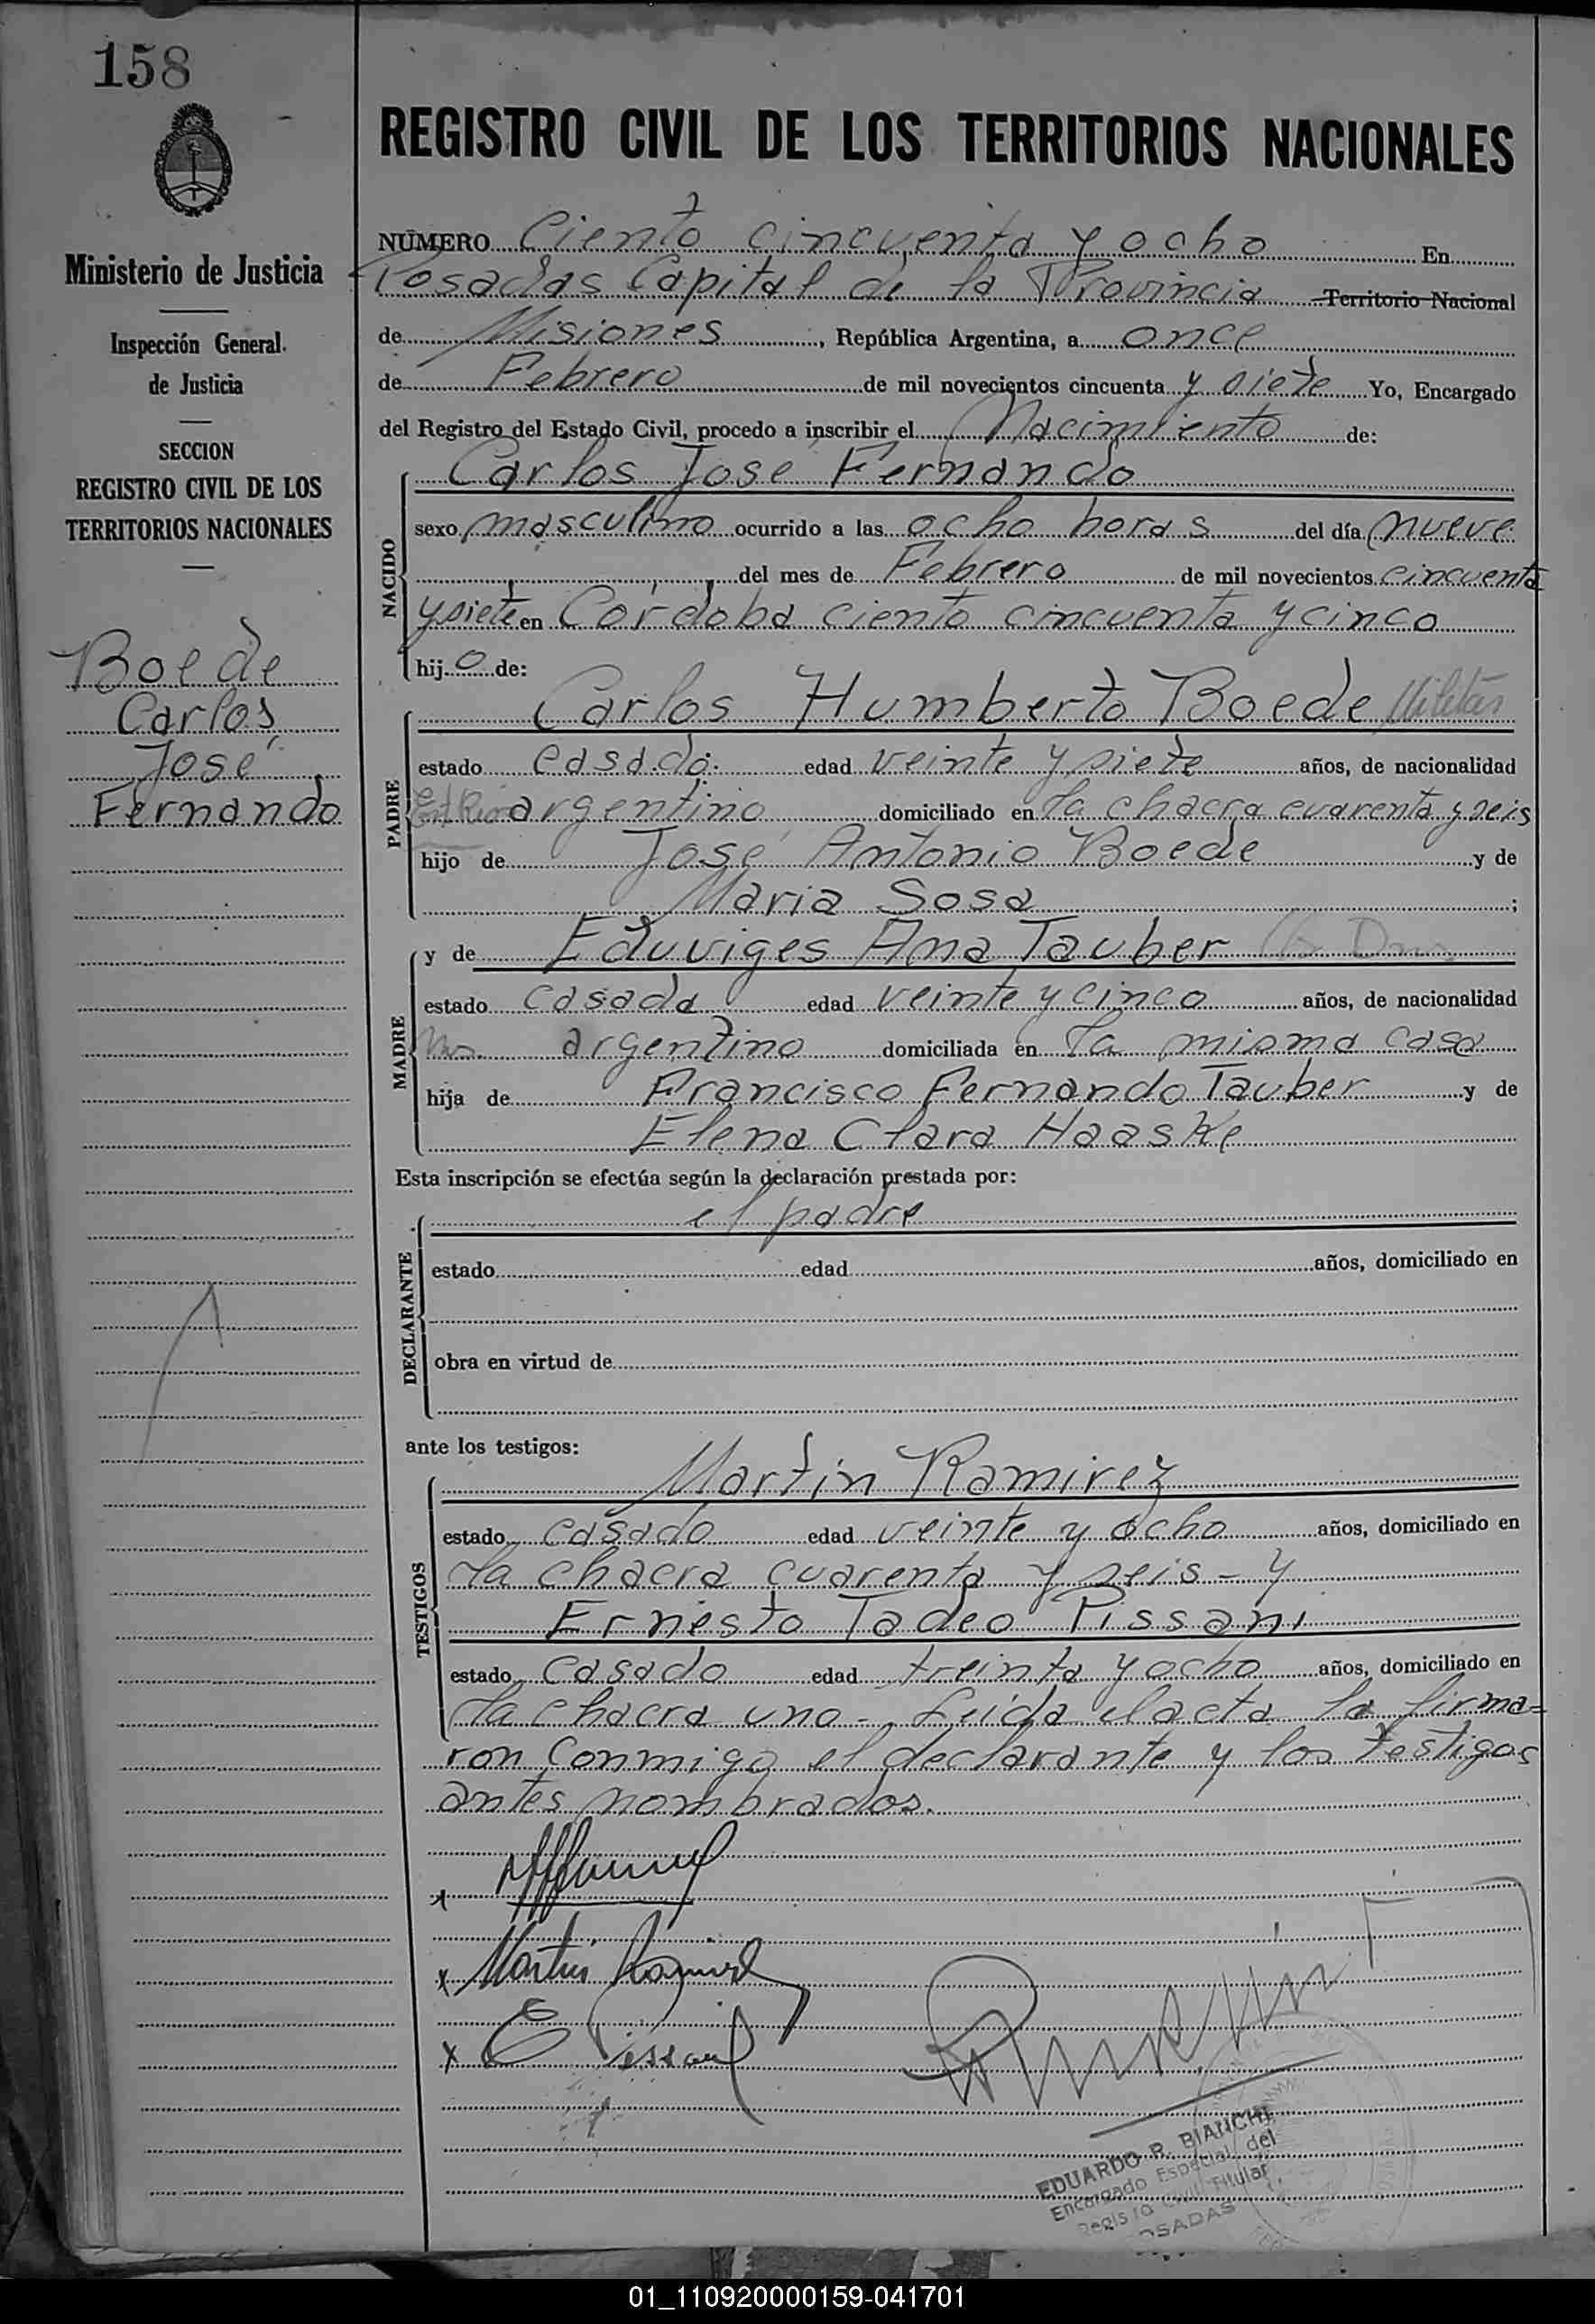 158
REGISTRO CIVIL DE LOS TERRITORIOS NACIONALES
Ministerio de Justicia
Inspección General
de Justicia
SECCION
REGISTRO CIVIL DE LOS
TERRITORIOS NACIONALES
Boede
Carlos
José
Fernando
NÚMERO Ciento cincuenta y ocho En
Posadas Capital de la Provincia Territorio Nacional
de Misiones, República Argentina, a once
de Febrero de mil novecientos cincuenta y siete Yo, Encargado
del Registro del Estado Civil, procedo a inscribir el Nacimiento de:
NACIDO
Carlos José Fernando
sexo masculino ocurrido a las ocho horas del día nueve
del mes de Febrero de mil novecientos cincuenta
y siete en Córdoba ciento cincuenta y cinco
hijo de:
PADRE
Carlos Humberto Boede Militar
estado casado. edad veinte y siete años, de nacionalidad
argentino domiciliado en la chacra cuarenta y seis
hijo de José Antonio Boede y de
Maria Sosa;
MADRE
y de Eduviges Ana Tauber
estado casada edad veinte y cinco años, de nacionalidad
argentina domiciliada en la misma casa
hija de Francisco Fernando Tauber y de
Elena Clara Haaske
Esta inscripción se efectúa según la declaración prestada por:
DECLARANTE
el padre
estado edad años, domiciliado en
obra en virtud de
ante los testigos:
TESTIGOS
Martín Ramirez
estado casado edad veinte y ocho años, domiciliado en
la chacra cuarenta y seis - y
Ernesto Tadeo Pissani
estado casado edad treinta y ocho años, domiciliado en
la chacra uno - Leída el acta la firma=
ron conmigo el declarante y los testigos
antes nombrados.
x
x Martin Ramirez
x E Pissani
EDUARDO R. BIANCHI
Encargado Especial del
Registro Civil Titular
POSADAS
01_110920000159-041701